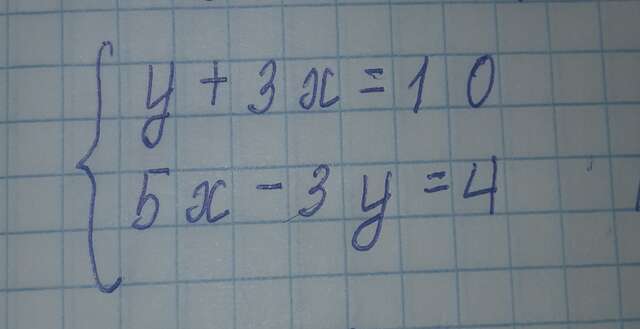 y + 3x = 10
5x - 3y = 4